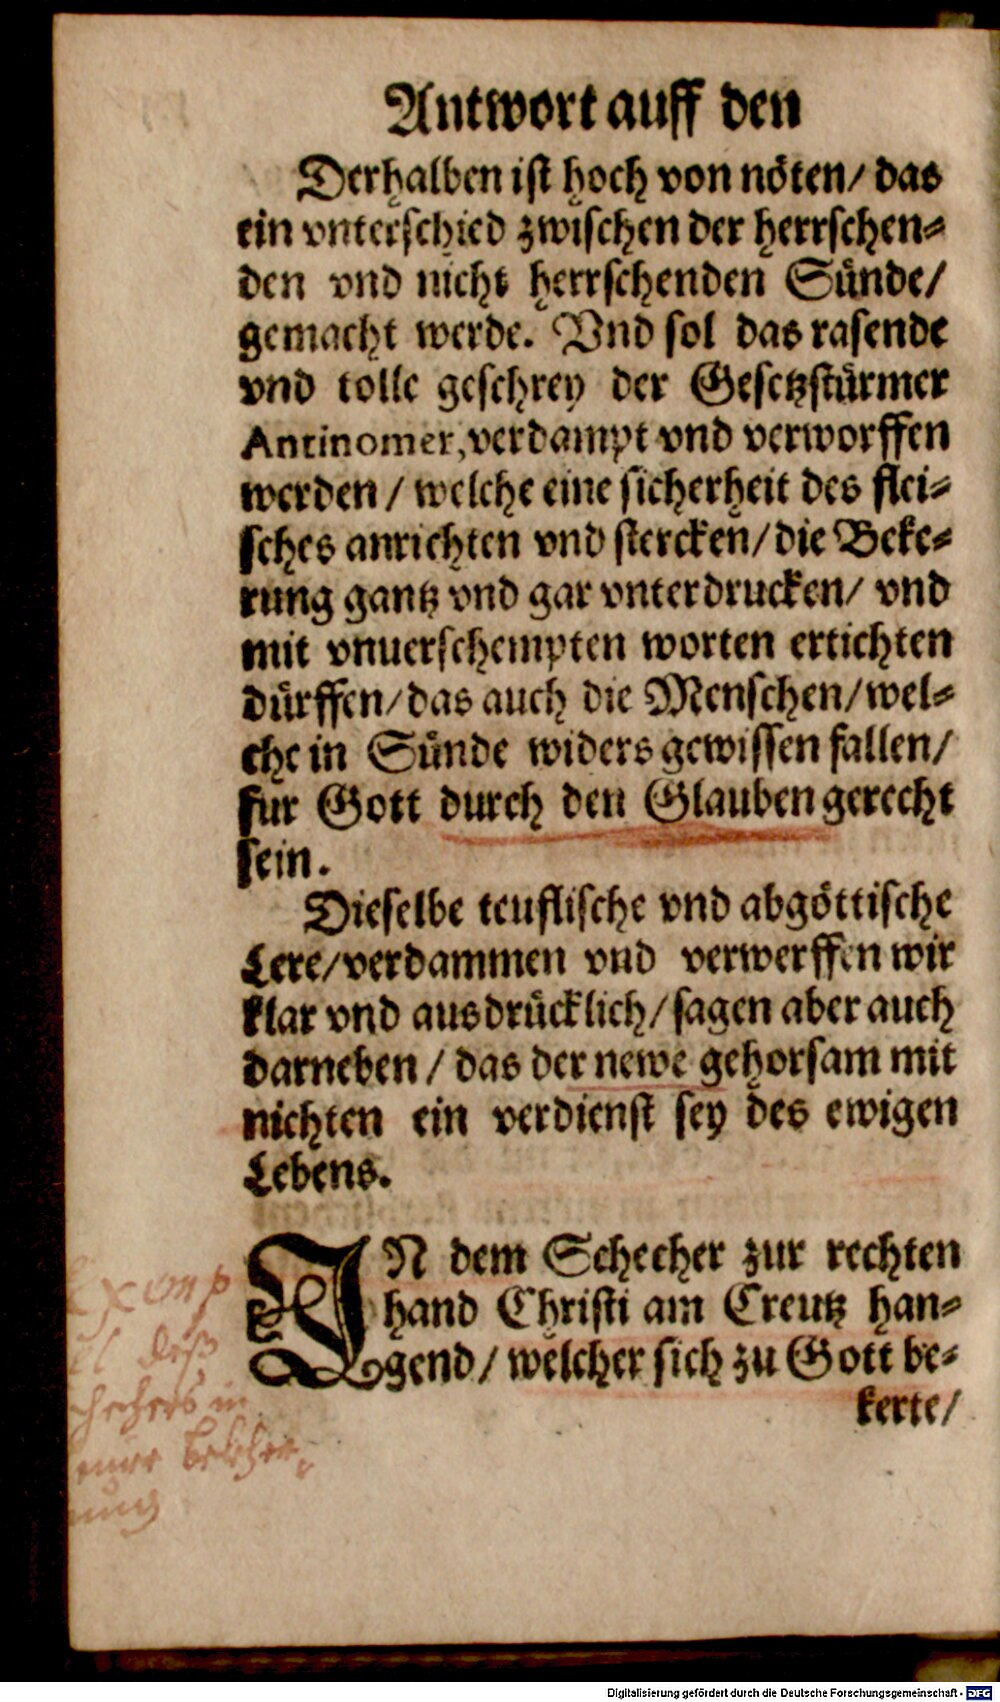 Antwort auff den
Derhalben ist hoch von nöten/ das
ein vnterschied zwischen der herrschen=
den vnd nicht herrschenden Sünde/
gemacht werde. Vnd sol das rasende
vnd tolle geschrey der Gesetzstürmer
Antinomer, verdampt vnd verworffen
werden / welche eine sicherheit des flei=
sches anrichten vnd stercken/ die Beke=
rung gantz vnd gar vnterdrucken/ vnd
mit vnuerschempten worten ertichten
dürffen/ das auch die Menschen/ wel=
che in Sünde widers gewissen fallen/
für Gott durch den Glauben gerecht
sein.
Dieselbe teuflische vnd abgöttische
Lere/ verdammen vnd verwerffen wir
klar vnd ausdrücklich/ sagen aber auch
darneben / das der newe gehorsam mit
nichten ein verdienst sey des ewigen
Lebens.
IN dem Schecher zur rechten
hand Christi am Creutz han=
gend/ welcher sich zu Gott be=
kerte/
Exomp
el deß
chechers in
einer bekher
nung
Digitalisierung gefördert durch die Deutsche Forschungsgemeinschaft - DFG